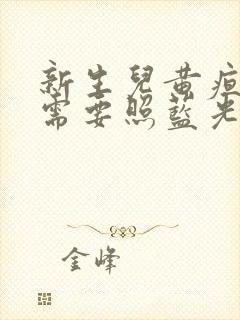 新生兒黃疸
需要照藍光
金峰